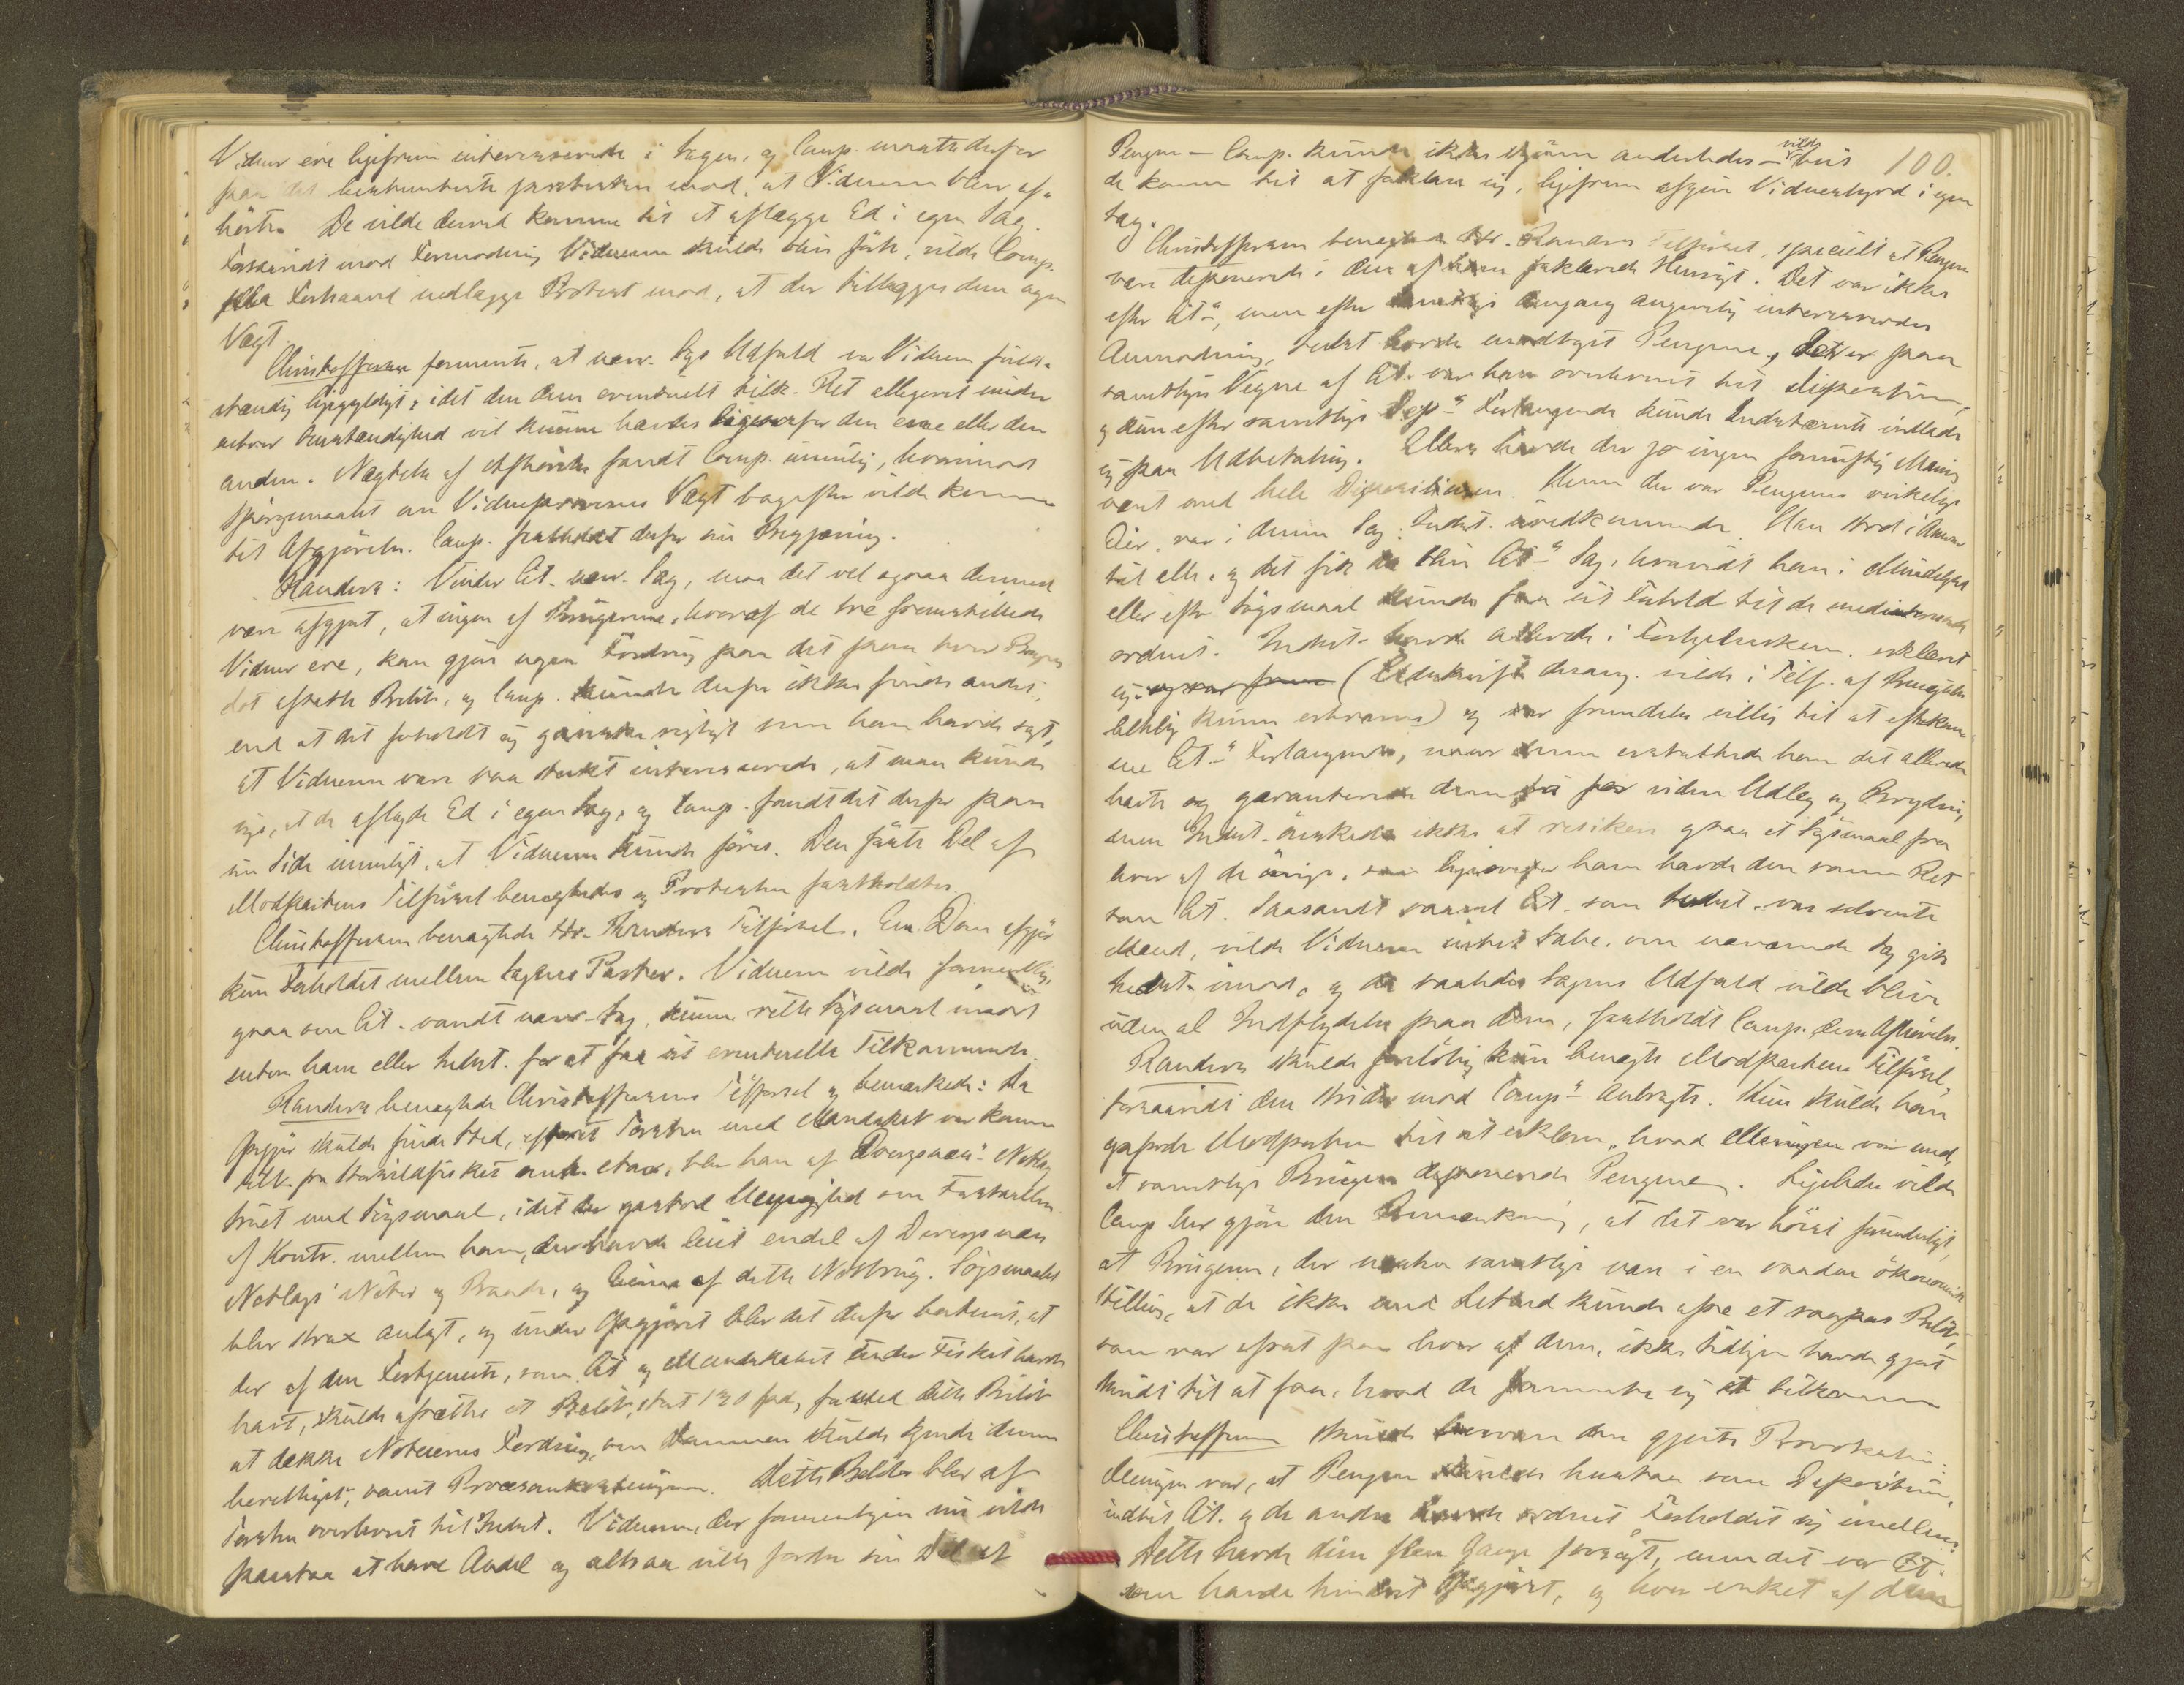 Vidner ere ligefrem interesserede i Sagen, og Comp. maatte derfor
paa det bestemteste protestere mod, at Vidnerne blev af-
hørte. De vilde derved komme til at aflægge Ed i egen Sag.
Forsaavidt mod Formodning Vidnerne skulde blive førte, vilde Comp.
paa Forhaand nedlægge Protest mod, at der tillægges dem nogen
Vægt.
Christoffersen formente, at nærv. Sags Udfald var Vidnerne fuld-
stændig ligegyldigt, idet den dem eventuelt tilk. Ret allegeret under
enhver Omstændighed vil kunne hævdes ligeoverfor den ene eller den
anden. Nægtelse af Afhørelse fandt Comp. umulig, hvorimod
Spørgsmaalet om Vidneprovenes Vægt bagefter vilde komme
til Afgjørelse. Comp. fastholdt derfor sin Begjæring.
Randers: Vinder Cit. nærv. Sag, maa det vel ogsaa dermed
være afgjort, at ingen af Brugerne, hvoraf de tre fremstillede
Vidner ere, kan gjøre nogen Fordring paa det paa hver Bruger
det afsatte Beløb, og Comp. kunde derfor ikke finde andet,
end at det forholdt sig ganske rigtigt som han havde sagt,
at Vidnerne vare saa sterkt interesserede, at man kunde
sige, at de aflagde Ed i egen Sag, og Comp. fandt det derfor paa
sin Side umuligt, at Vidnerne kunde føres. Den førte Del af
Modpartens Tilførsel benægtedes og Protesten fastholdtes.
Christoffersen benægtede Hr. Randers Tilførsel. En Dom afgjør
kun Forholdet mellem Sagens Parter. Vidnerne vilde formentlig,
ogsaa om Cit. vandt nærv. Sag, kunne rette Søgsmaal imod
enten ham eller Indst. for at faa sit eventuelle Tilkommende.
Randers benægtede Christoffersens Tilførsel og bemærkede: Da
Opgjør skulde finde Sted, efterat Forsten med Mandskab var kommet
tilb. fra Storsildfisket blev han af Notlag
truet med Søgsmaal, idet der opstod Uenighed om Fastsættelse
af Kontr. mellem ham, der havde leiet endel af
Notlags Nøter og Baade, og Eierne af dette Notbrug. Søgsmaalet
blev strax anlagt, og under Opgjøret blev det derfor bestemt, at
der af den Fortjeneste, som Cit. og Mandskabet under Fisket havde
havt, skulde afsættes et Beløb, stort for med dette Beløb
at dække Noteiernes Fordring, om Dommen skulde kjende denne
berettiget, samt Procesomkostningerne. Dette Beløb blev af
Forsten overleveret til Indst. Vidnerne, der formentligen nu vilde
paastaa at have Andel og altsaa ville fordre sin Del af
100.
Pengene – Comp. kunde ikke skjønne anderledes – vilde hvis
de kom til at forklare sig, ligefrem afgive Vidnesbyrd i egen
Sag.
Christoffersen benægtede Hr. Randers Tilførsel, specielt at Pengene
vare deponerede i den af ham forklarede Hensigt. Det var ikke
efter Cit.s, men efter samtlige dengang angivelig interesseredes
Anmodning, Indst. havde modtaget Pengene, Det er paa
samtliges Vegne af Cit. var ham overleveret til Deposition,
og kun efter samtlige Dep.s Forlangende kunde Indstævnte indlade
sig paa Udbetaling. Ellers havde der jo ingen fornuftig Mening
været med hele Dispositionen. Hvem der var Pengenes virkelige
Eier, var i denne Sag Indst. uvedkommende. Han stod i Ansvar
til alle, og det fik da blive Cit.s Sag, hvorvidt han i Mindelighed
eller efter Søgsmaal kunde faa sit Forhold til de medinteresserede
ordnet. Indst. havde allerede i Forligelseskom. erklæret
sig (Udskrift desang. vilde i Tilf. af Benægtelse
betids kunne erhverves) og var fremdeles villig til at efterkom-
me Cit.s Forlangende, naar denne erstattede ham det allerede
havte og garanterede ham for videre Udlæg og Bryderi,
men Indst. ønskede ikke at resikere ogsaa et Søgsmaal fra
hver af de øvrige, som ligeoverfor ham havde den samme Ret
som Cit. Saasandt saavel Cit. som Indst. var solvente
Mænd, vilde Vidnerne intet tabe, om nærværende Sag gik
Indst. imod, og da saaledes Sagens Udfald vilde blive
uden al Indflydelse paa dem, fastholdt Comp. deres Afhørelse.
Randers skulde foreløbig kun benægte Modpartens Tilførsel,
forsaavidt den strider mod Comp.s Anbragte. Kun skulde han
opfordre Modparten til at erklære, hvad Meningen var med,
at samtlige Brugere deponerede Pengene. Ligeledes vilde
Comp. her gjøre den Bemærkning, at det var høist forunderligt,
at Brugerne, der næsten samtlige vare i en saadan økonomisk
Stilling, at de ikke med Lethed kunde afse et saapas Beløb,
som var afsat paa hver af dem, ikke tidligere havde gjort
Skridt til at faa, hvad de formente sig at tilkomme
Christoffersen skulde besvare den gjorte Provokation:
Meningen var, at Pengene skulde henstaa som Depositum,
indtil Cit. og de andre havde ordnet Forholdet sig imellem.
Dette havde disse flere Gange forsøgt, men det var Cit.
som havde hindret Opgjøret, og hver enkelt af dem